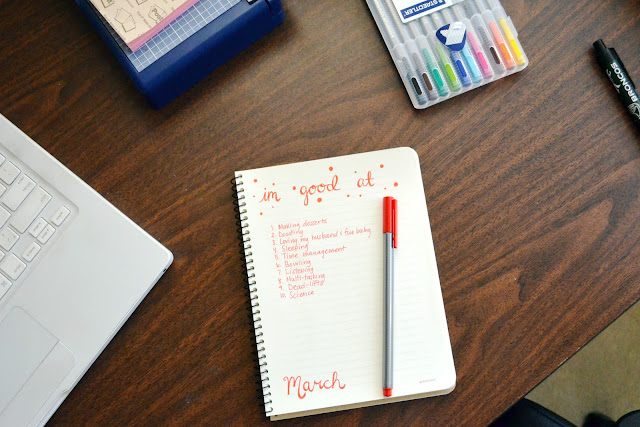 STAEDTLER
BRONCOS
im good at
1. Making desserts
2. Doodling
3. Loving my husband & fur baby
4. Sleeping
5. Time management
6. Bowling
7. Listening
8. Multi-tasking
9. Dead-lifts
10. Science
March